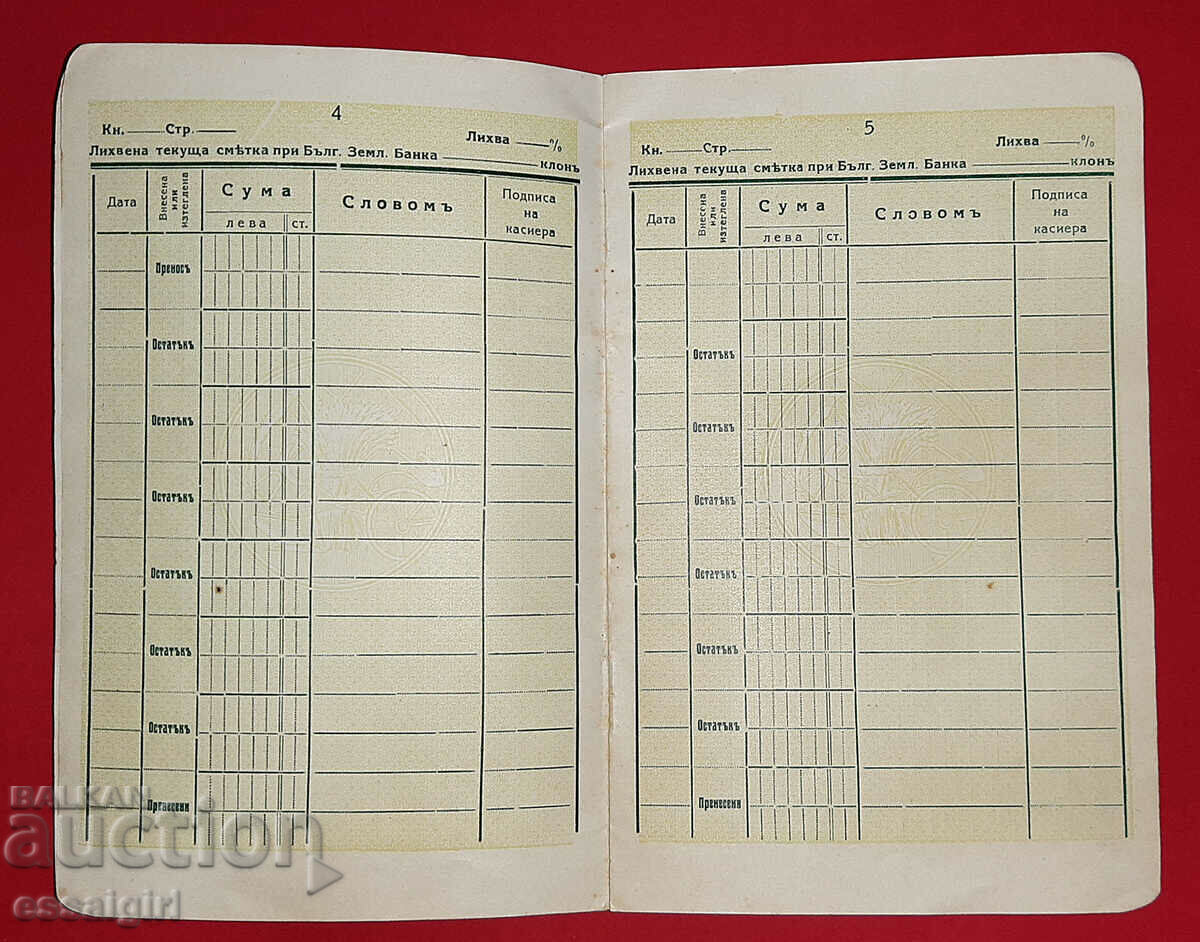 4
Кн. Стр. Лихва %
Лихвена текуща смѣтка при Бълг. Земл. Банка клонъ
Дата
Внесена или изтеглена
Сума
лева ст.
Словомъ
Подписа
на
касиера
Преносъ
Остатъкъ
Остатъкъ
Остатъкъ
Остатъкъ
Остатъкъ
Остатъкъ
Пренесени
5
Кн. Стр. Лихва %
Лихвена текуща смѣтка при Бълг. Земл. Банка клонъ
Дата
Внесена или изтеглена
Сума
лева ст.
Словомъ
Подписа
на
касиера
Остатъкъ
Остатъкъ
Остатъкъ
Остатъкъ
Остатъкъ
Остатъкъ
Пренесени
BALKAN
auction
essaigirl